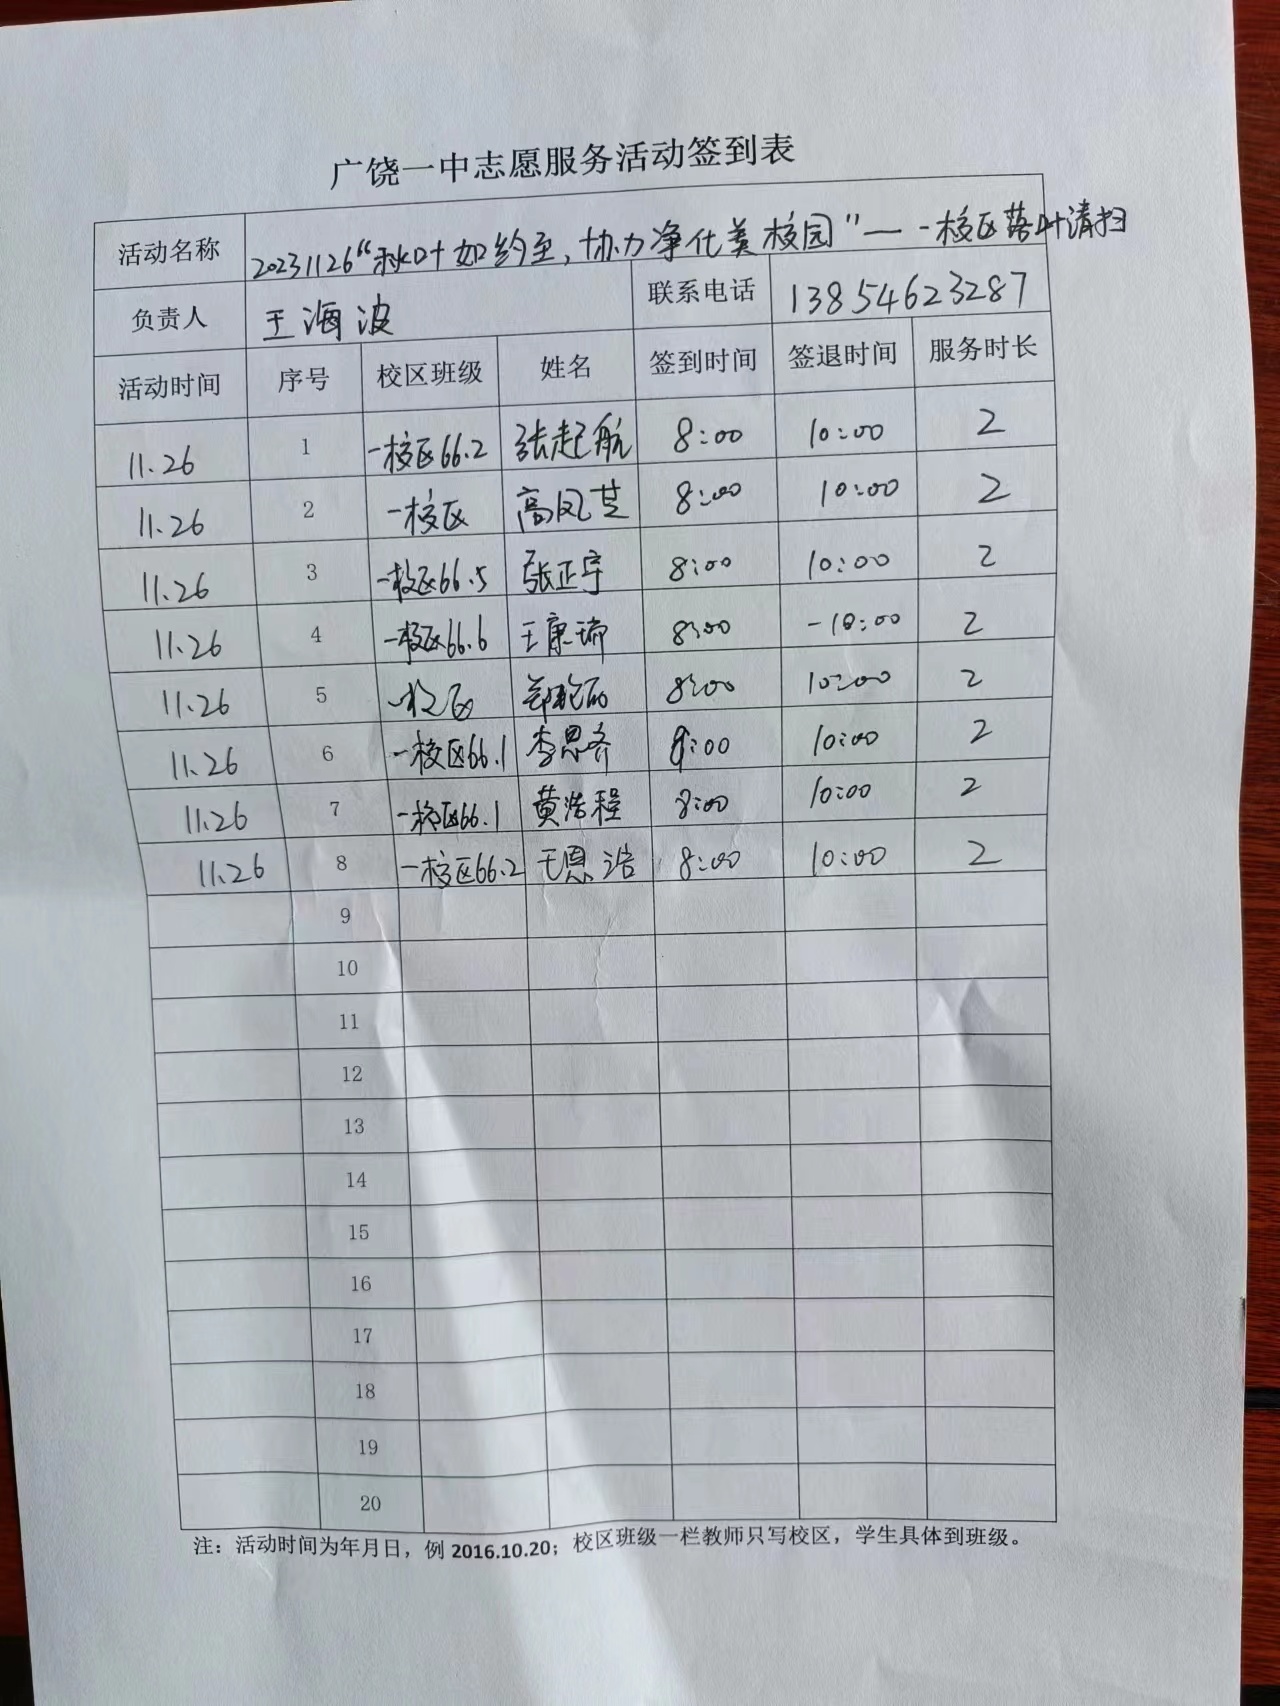 广饶一中志愿服务活动签到表
活动名称 20231126“秋叶如约至，协力净化美校园”——一校区落叶清扫
负责人 王海波 联系电话 13854623287
活动时间 序号 校区班级 姓名 签到时间 签退时间 服务时长
11.26 1 一校区66.2 张起航 8:00 10:00 2
11.26 2 一校区 高凤芝 8:00 10:00 2
11.26 3 一校区66.5 张正宇 8:00 10:00 2
11.26 4 一校区66.6 王康瑞 8:00 -10:00 2
11.26 5 一校区 8:00 10:00 2
11.26 6 一校区66.1 李思齐 8:00 10:00 2
11.26 7 一校区66.1 黄浩程 8:00 10:00 2
11.26 8 一校区66.2 王恩浩 8:00 10:00 2
9
10
11
12
13
14
15
16
17
18
19
20
注：活动时间为年月日，例 2016.10.20；校区班级一栏教师只写校区，学生具体到班级。